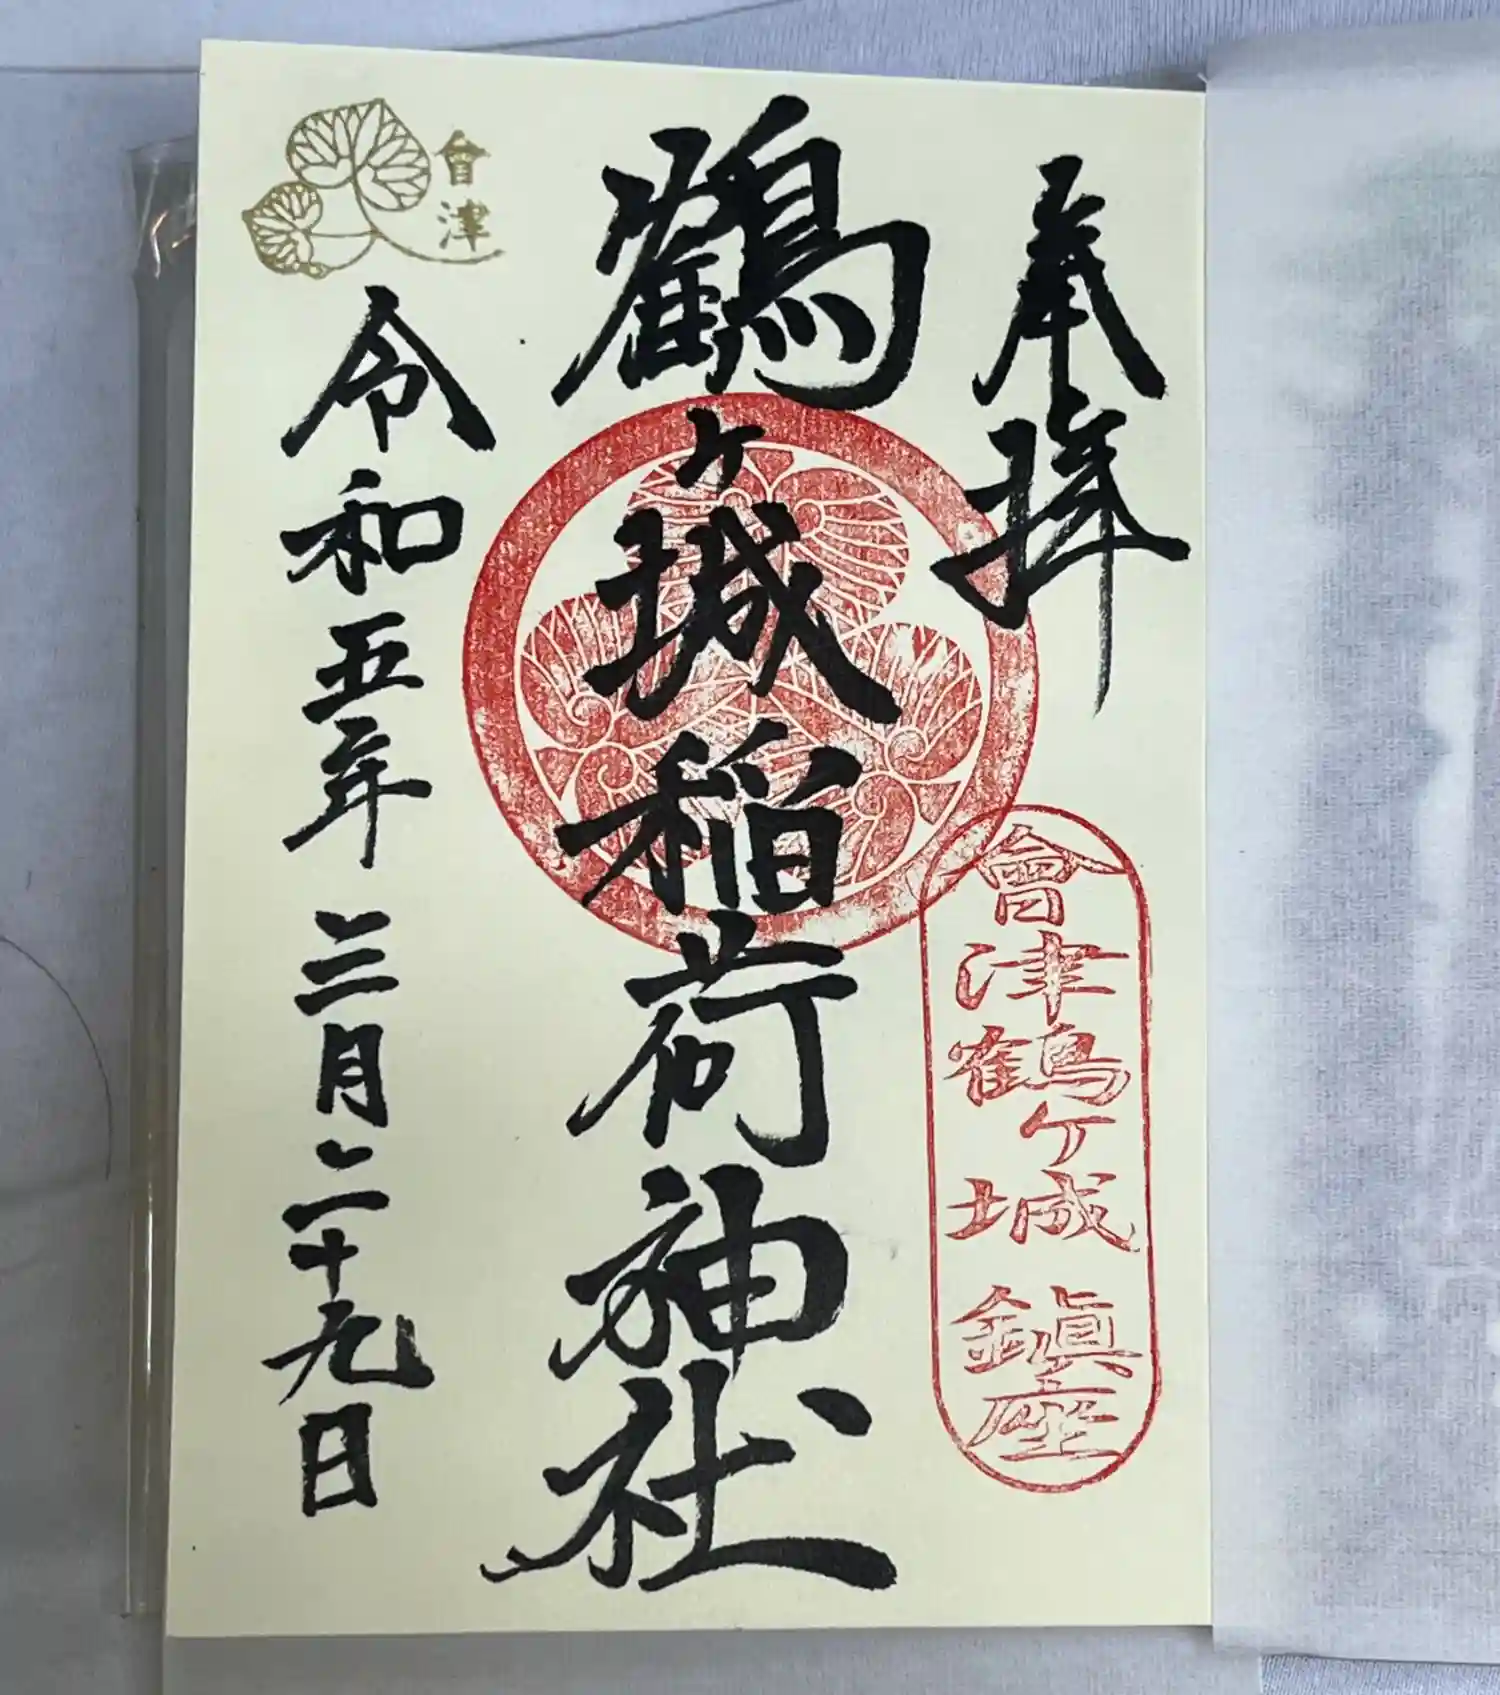 奉拝
會津鶴ヶ城鎮座
鶴ヶ城稲荷神社
會津
令和五年三月二十九日